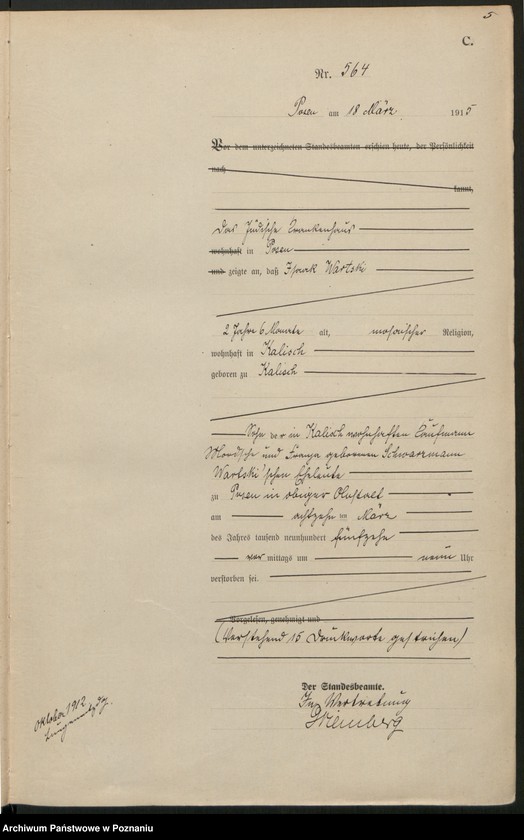 5
C.
Nr. 564
Posen am 18 März 1915
Vor dem unterzeichneten Standesbeamten erschien heute, der Persönlichkeit
nach
kannt,
Das Jüdische Krankenhaus
wohnhaft in Posen
und zeigte an, daß Isaak Wartski
2 Jahre 6 Monate alt, mosaischer Religion,
wohnhaft in Kalisch
geboren zu Kalisch
Sohn der in Kalisch wohnhaften Kaufmann
Mordsche und Franja geborenen Schwarzmann
Wartski'schen Eheleute
zu Posen in obiger Anstalt
am achtzehn ten März
des Jahres tausend neunhundert fünfzehn
vor mittags um neun Uhr
verstorben sei.
Vorgelesen, genehmigt und
(Vorstehend 15 Druckworte gestrichen)
Der Standesbeamte.
In Vertretung
Oktober 1912
Archiwum Państwowe w Poznaniu